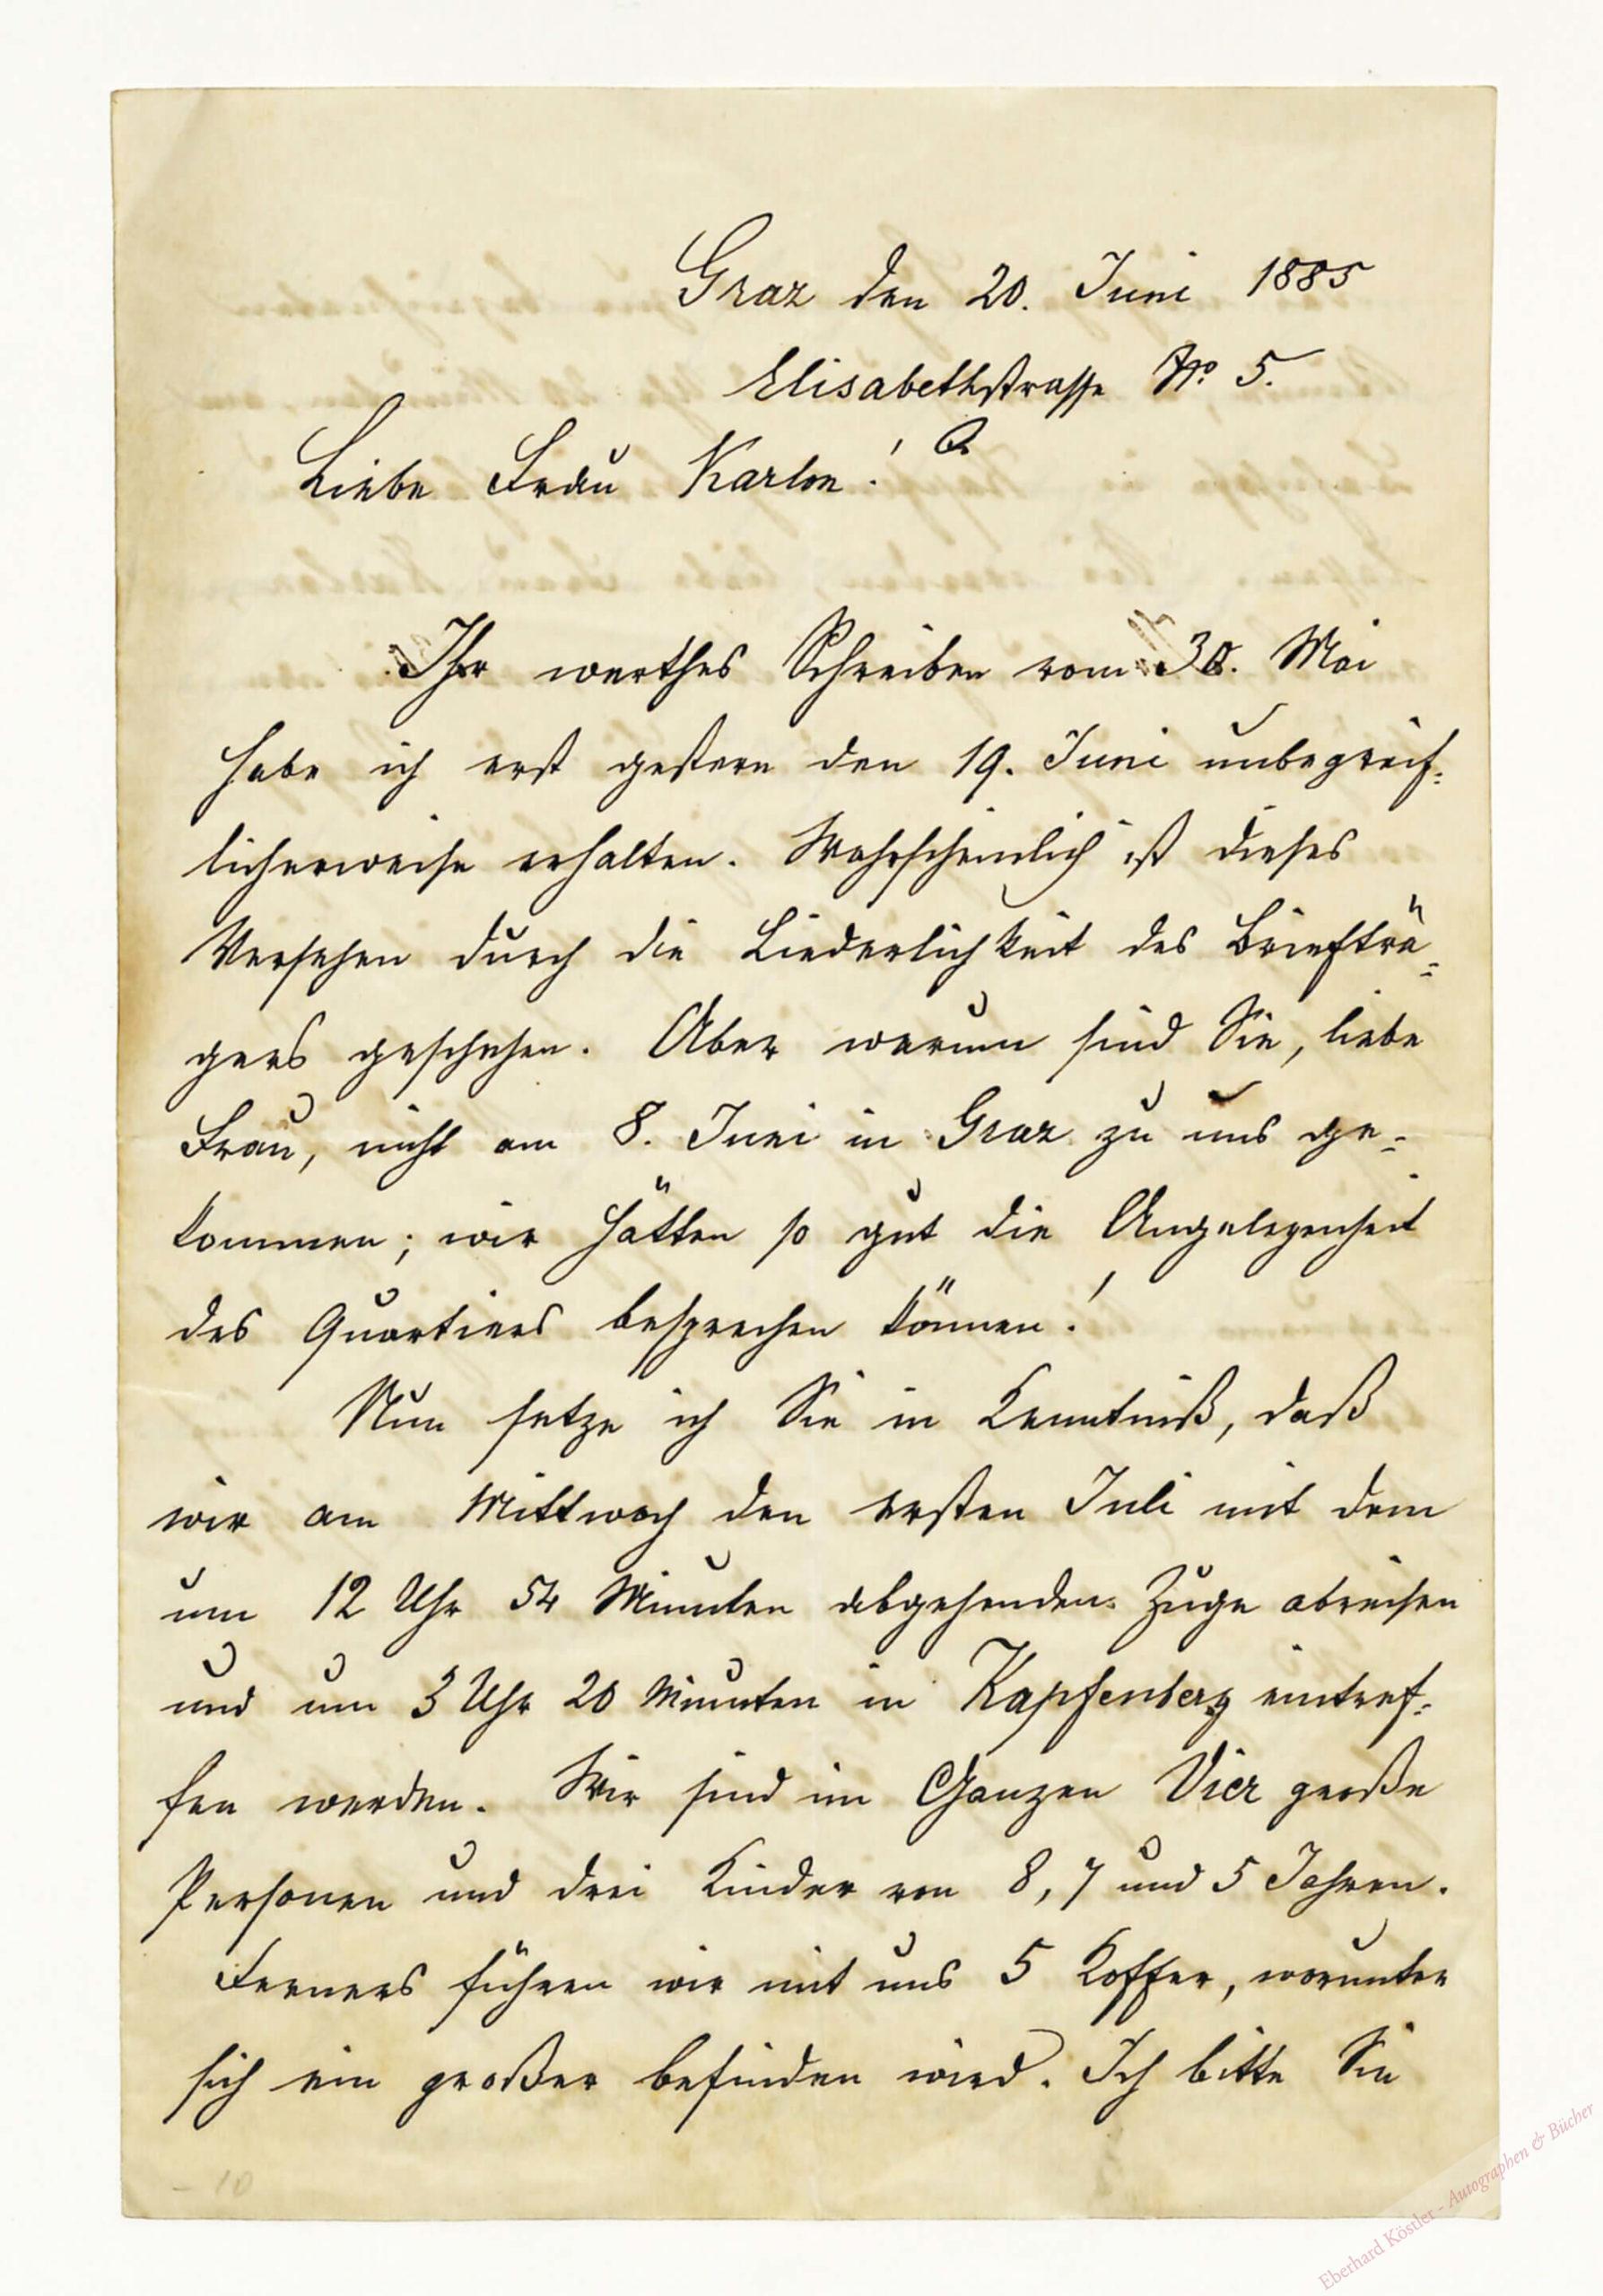 Graz den 20. Juni 1885
Elisabethstrasse No. 5.
Liebe Frau Karlon!
Ihr werthes Schreiben vom 30. Mai
habe ich erst gestern den 19. Juni unbegreif=
licherweise erhalten. Wahrscheinlich ist dieses
Versehen durch die Liederlichkeit des Briefträ=
gers geschehen. Aber warum sind Sie, liebe
Frau, nicht am 8. Juni in Graz zu uns ge=
kommen; wir hätten so gut die Angelegenheit
des Quartiers besprechen können!
Nun setze ich Sie in Kenntniß, daß
wir am Mittwoch den ersten Juli mit dem
um 12 Uhr 54 Minuten abgehenden Zuge abreisen
und um 3 Uhr 20 Minuten in Kapfenberg eintref=
fen werden. Wir sind im Ganzen Vier große
Personen und drei Kinder von 8, 7 und 5 Jahren.
Ferners führen wir mit uns 5 Koffer, worunter
sich ein großer befinden wird. Ich bitte Sie
- 10
Eberhard Köstler - Autographen & Bücher